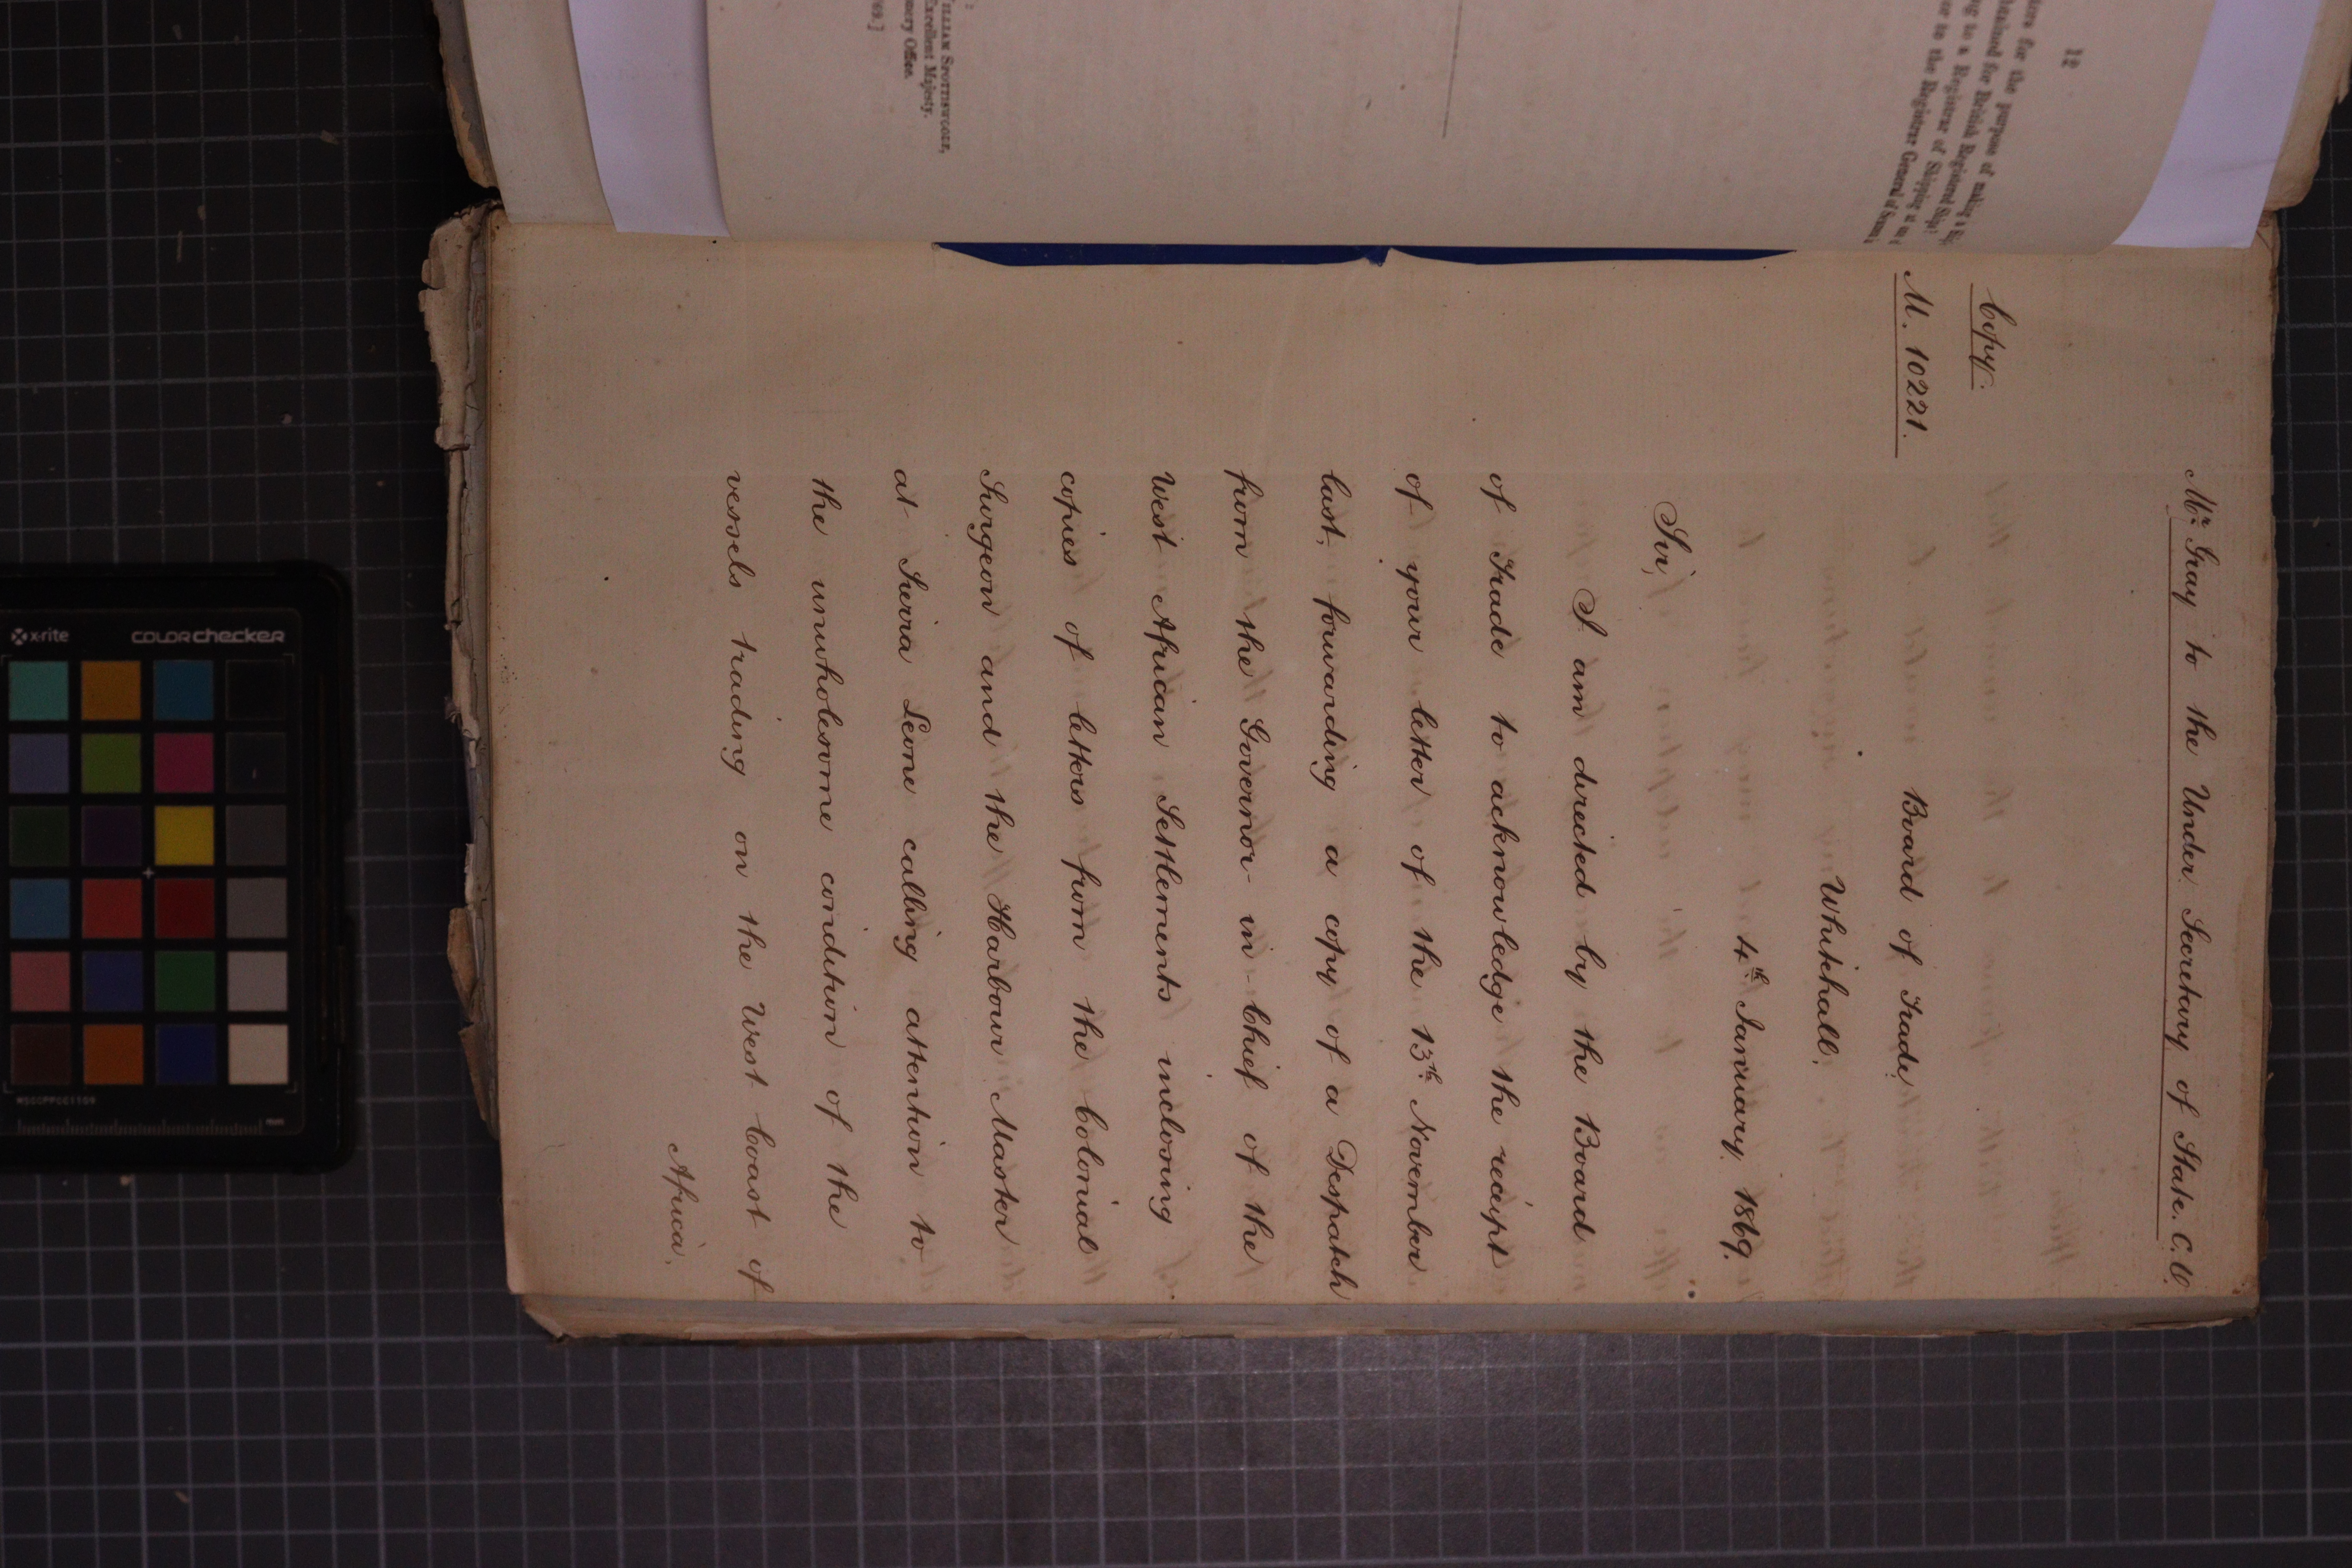 12
Mr. Gray to the Under Secretary of State. C.O.
Copy.
M. 10221.
Board of Trade
Whitehall.
4th January 1869.
Sir,
I am directed by the Board
of Trade to acknowledge the receipt
of your letter of the 13th November
last, forwarding a copy of a Despatch
from the Governor-in-Chief of the
West African Settlements inclosing
copies of letters from the Colonial
Surgeon and the Harbour Master
at Sierra Leone calling attention to
the unwholesome condition of the
vessels trading on the West Coast of
Africa.
for the purpose of making a
for British Registered Ship
to a Registrar of Shipping at
or to the Registrar General of
SPOTTISWOODE,
Excellent Majesty.
Office.
x-rite
colorchecker
mm